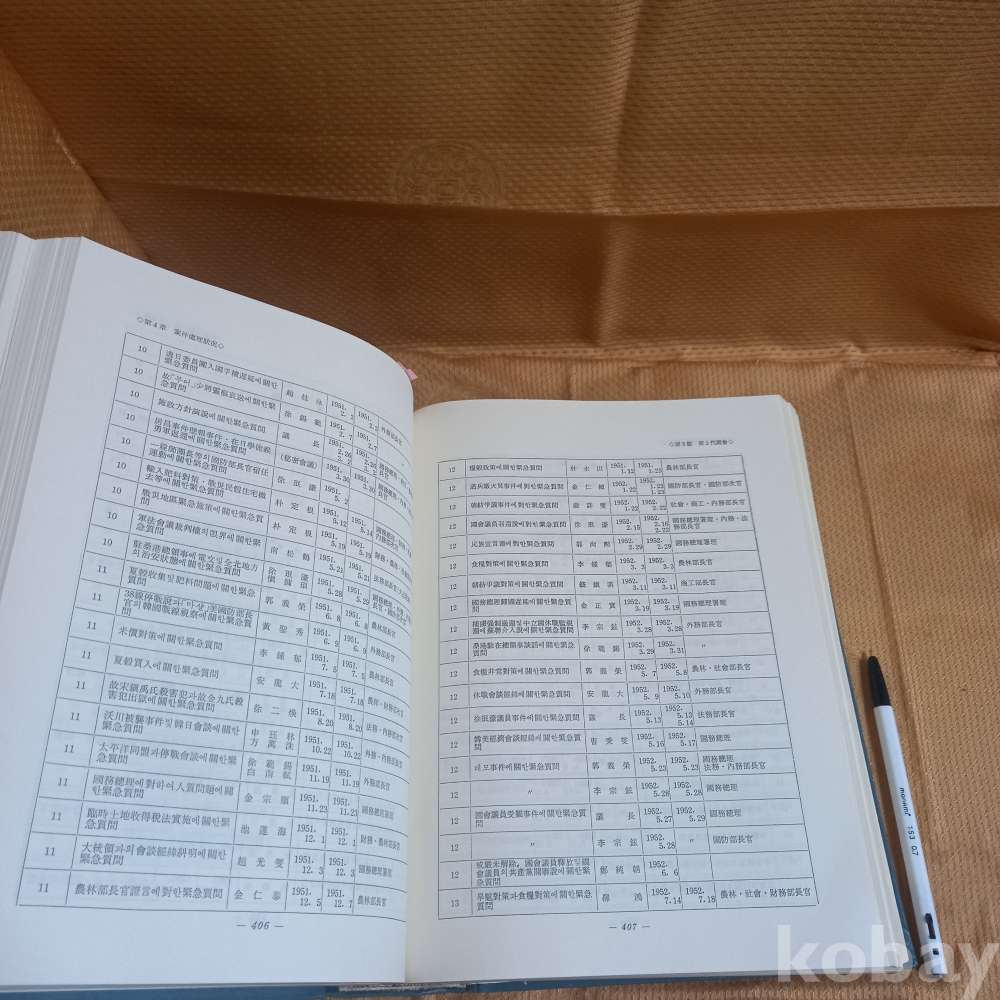 ◇第4章 案件處理狀況◇
10 遣日委員團入國手續遲延에 關한 緊急質問 趙柱泳 1951. 2. 3 1951. 2. 3 外務部長官
10 急質問 徐範錫 1951. 2. 7 1951. 2. 7
10 施政方針演說에 關한 緊急質問 議長
10 居昌事件 (秘密會議)
10 一線師團長等의 國防部長官留任運動에 關한 緊急質問 徐珉濠 1951. 5. 2
10 輸入肥料對策·戰災民假住宅撤去等에 關한 緊急質問 朴定根 1951. 5.12 1951. 5.14
10 戰災地區緊急施策에 關한 緊急質問 朴定根 1951. 5.19 1951. 5.19
10 軍法會議裁判權의 限界에 關한 緊急質問 南松鶴 1951. 5.21 1951. 5.21
10 駐桑港總領事에 電文및 全北地方의 治安狀態에 關한 緊急質問 徐珉濠 1951. 5.28 1951. 5.28
11 夏穀收集및 肥料問題에 關한 緊急質問 郭義榮 1951. 6. 8 1951. 6. 8 農林部長官
11 38線停戰說과 美國防部長官의 韓國戰線視察에 關한 緊急質問 黃聖秀 1951. 6. 9 1951. 6. 9 外務部長官
11 米價對策에 關한 緊急質問 李鍾郁 1951. 7. 5 1951. 7. 5 農林部長官
11 夏穀買入에 關한 緊急質問 安龍大 1951. 7.18 1951. 7.18 農林·財務部長官
11 故宋鎭禹氏殺害犯과 故金九氏殺害犯出獄에 關한 緊急質問 徐二煥 1951. 8.20 1951. 8.20 法務·內務部長官
11 沃川被襲事件및 韓日會談에 關한 緊急質問 申珏休 方萬洙 1951. 10.22 1951. 10.22 外務·內務部長官
11 太平洋同盟과 停戰會談에 關한 緊急質問 徐範錫 白南軾 1951. 11.19 1951. 11.19 外務部長官
11 國務總理에 對하여 人質問題에 關한 緊急質問 金宗順 1951. 11.23 1951. 11.23 國務總理署理
11 臨時土地收得稅法實施에 關한 緊急質問 池蓮海 1951. 12. 1 1951. 12. 1 財務·農林部長官
11 大統領과의 會談經緯糾明에 關한 緊急質問 趙光燮 1951. 12. 3 1951. 12. 3 國務總理署理
11 農林部長官證言에 對한 緊急質問 金仁泰 1951. 12. 5 1951. 12. 7 農林部長官
— 406 —
◇第3編 第2代國會◇
12 糧穀政策에 關한 緊急質問 朴永出 1952. 1.12 1952. 1.23 農林部長官
12 造兵廠火災事件에 對한 緊急質問 1952. 1.22 1952. 1.23 1.23 國防部長官·國防部次官
12 朝紡爭議事件에 對한 緊急質問 1952. 1.22 1952. 2.22 社會·商工·內務部長官
12 國會議員召還說에 對한 緊急質問 徐珉濠 1952. 2.15 1952. 2.16 2.22 國務總理署理·內務·法務部長官
12 民族宣言書에 對한 緊急質問 郭尚勳 1952. 2.29 1952. 2.29 國務總理署理
12 食糧對策에 關한 緊急質問 李鍾郁 1952. 3. 3 1952. 3. 3 農林部長官
12 朝紡爭議對策에 關한 緊急質問 1952. 3.11 1952. 3.11 商工部長官
12 國務總理歸國遲延에 關한 緊急質問 金正實 1952. 3.19 1952. 3.19 國務總理署理
12 捕虜强制送還및 中立國休戰監視團에 蘇聯介入說에 關한 緊急質問 李宗鉉 1952. 3.28 1952. 3.28 外務部長官
12 桑港駐在總領事談話에 關한 緊急質問 徐範錫 1952. 3.29 1952. 3.31 〃
12 食糧非常對策에 關한 緊急質問 郭義榮 1952. 5. 7 1952. 5. 8 農林·社會部長官
12 休戰會談經緯에 關한 緊急質問 安龍大 1952. 5. 9 1952. 5.10 外務部長官
12 徐珉濠議員事件에 關한 緊急質問 議長 1952. 5.13 1952. 5.13 5.14 法務部長官
12 韓美經濟會談經緯에 關한 緊急質問 曺秉雯 1952. 5.16 1952. 5.17 國務總理
12 테모事件에 關한 緊急質問 郭義榮 1952. 5.23 1952. 5.23 國務總理 法務·內務部長官
12 〃 李宗鉉 1952. 5.28 1952. 5.28 國務總理
12 國會議員受難事件에 關한 緊急質問 議長 1952. 5.27 1952. 5.29 國務總理
12 〃 李宗鉉 1952. 5.28 〃 國防部長官
12 戒嚴未解除, 國會議員釋放및 國會議員의 共產黨關聯說에 關한 緊急質問 鄭純朝 1952. 6. 6
13 旱魃對策과 食糧對策에 關한 緊急質問 柳鴻 1952. 7.14 1952. 7.18 農林·社會·財務部長官
— 407 —
monami 153 0.7
kobay